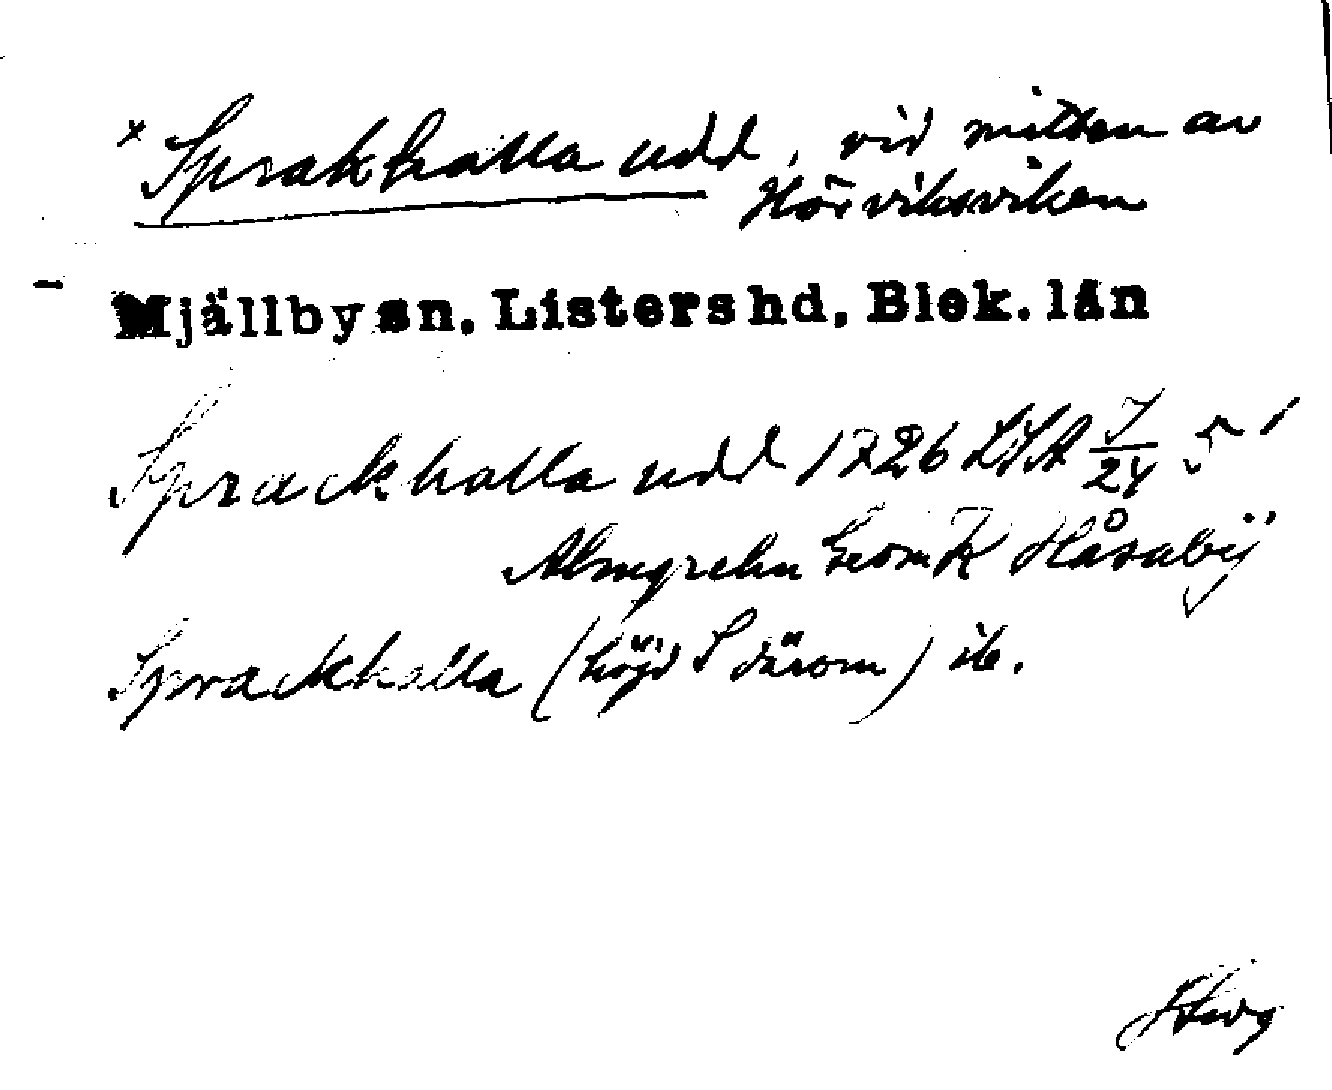 * Sprakhalla udd, vid mitten av
Hörviksviken
Mjällby sn. Listers hd, Blek. län
Sprackhalla udd 1726 LSA I/24 5¹
Almgrehn GeomK Håsabÿ
Sprackhalla (höjd S därom) ib.